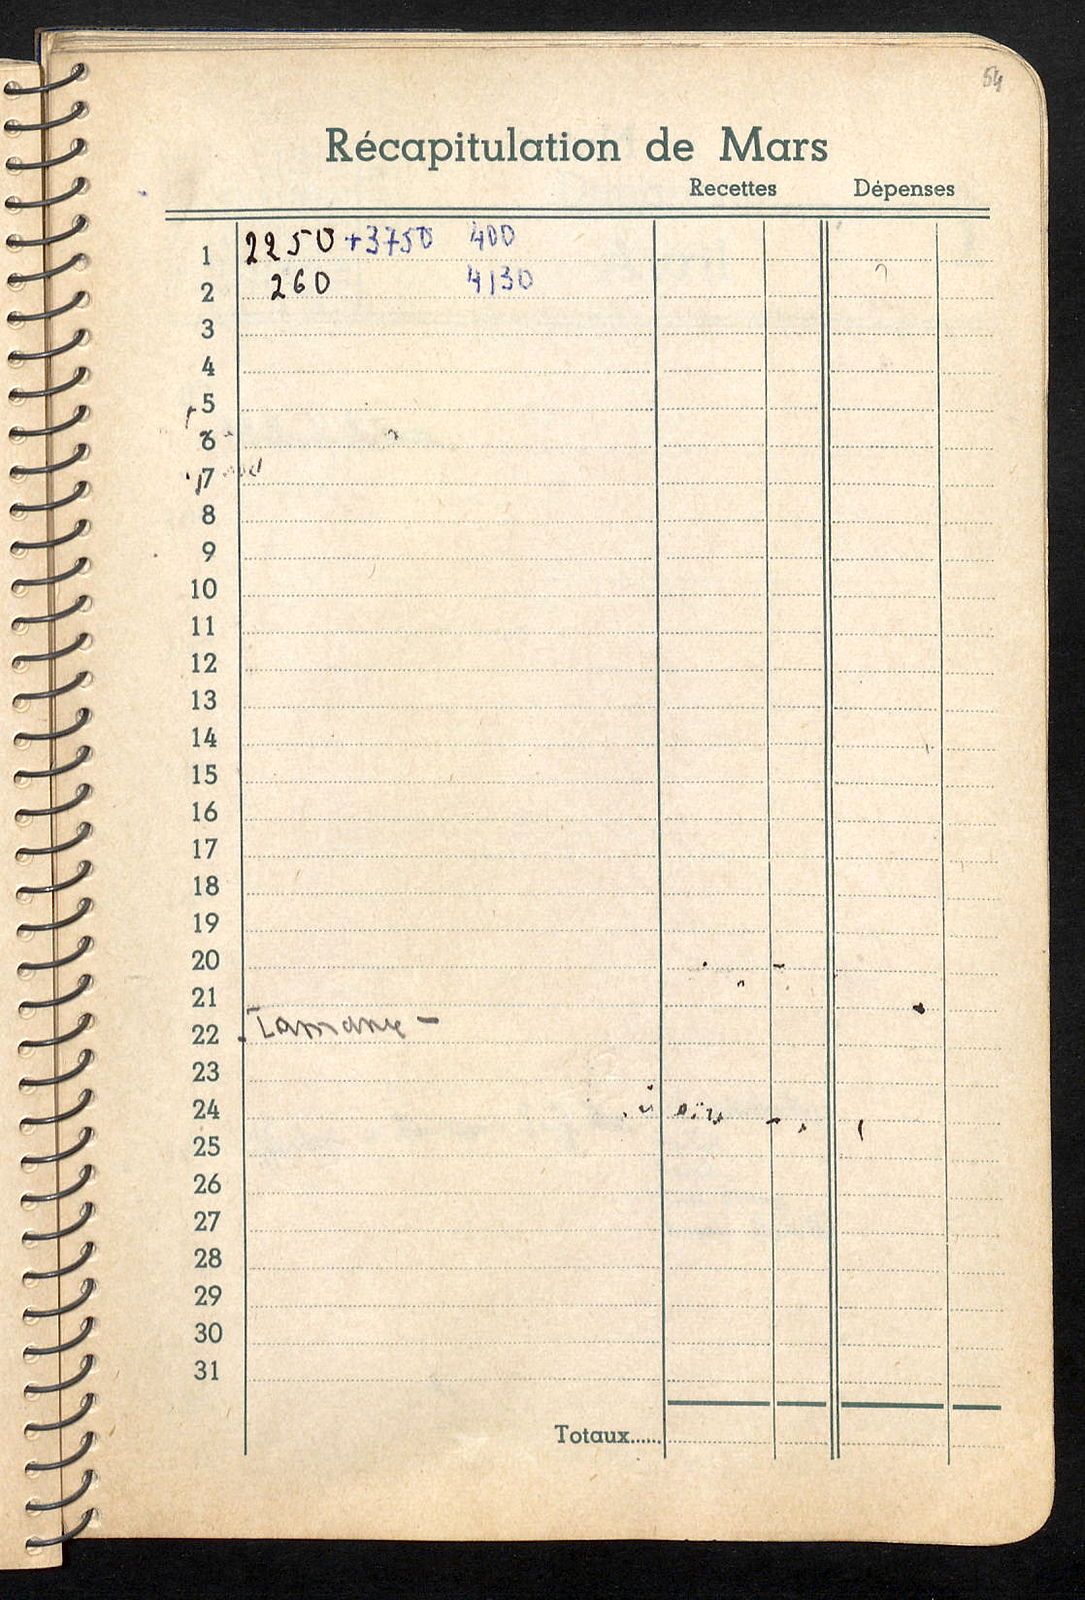 54
Récapitulation de Mars
Recettes Dépenses
1 2250 +3750 400
2 260 4130
3
4
5
6
7
8
9
10
11
12
13
14
15
16
17
18
19
20
21
22
23
24
25
26
27
28
29
30
31
Totaux......